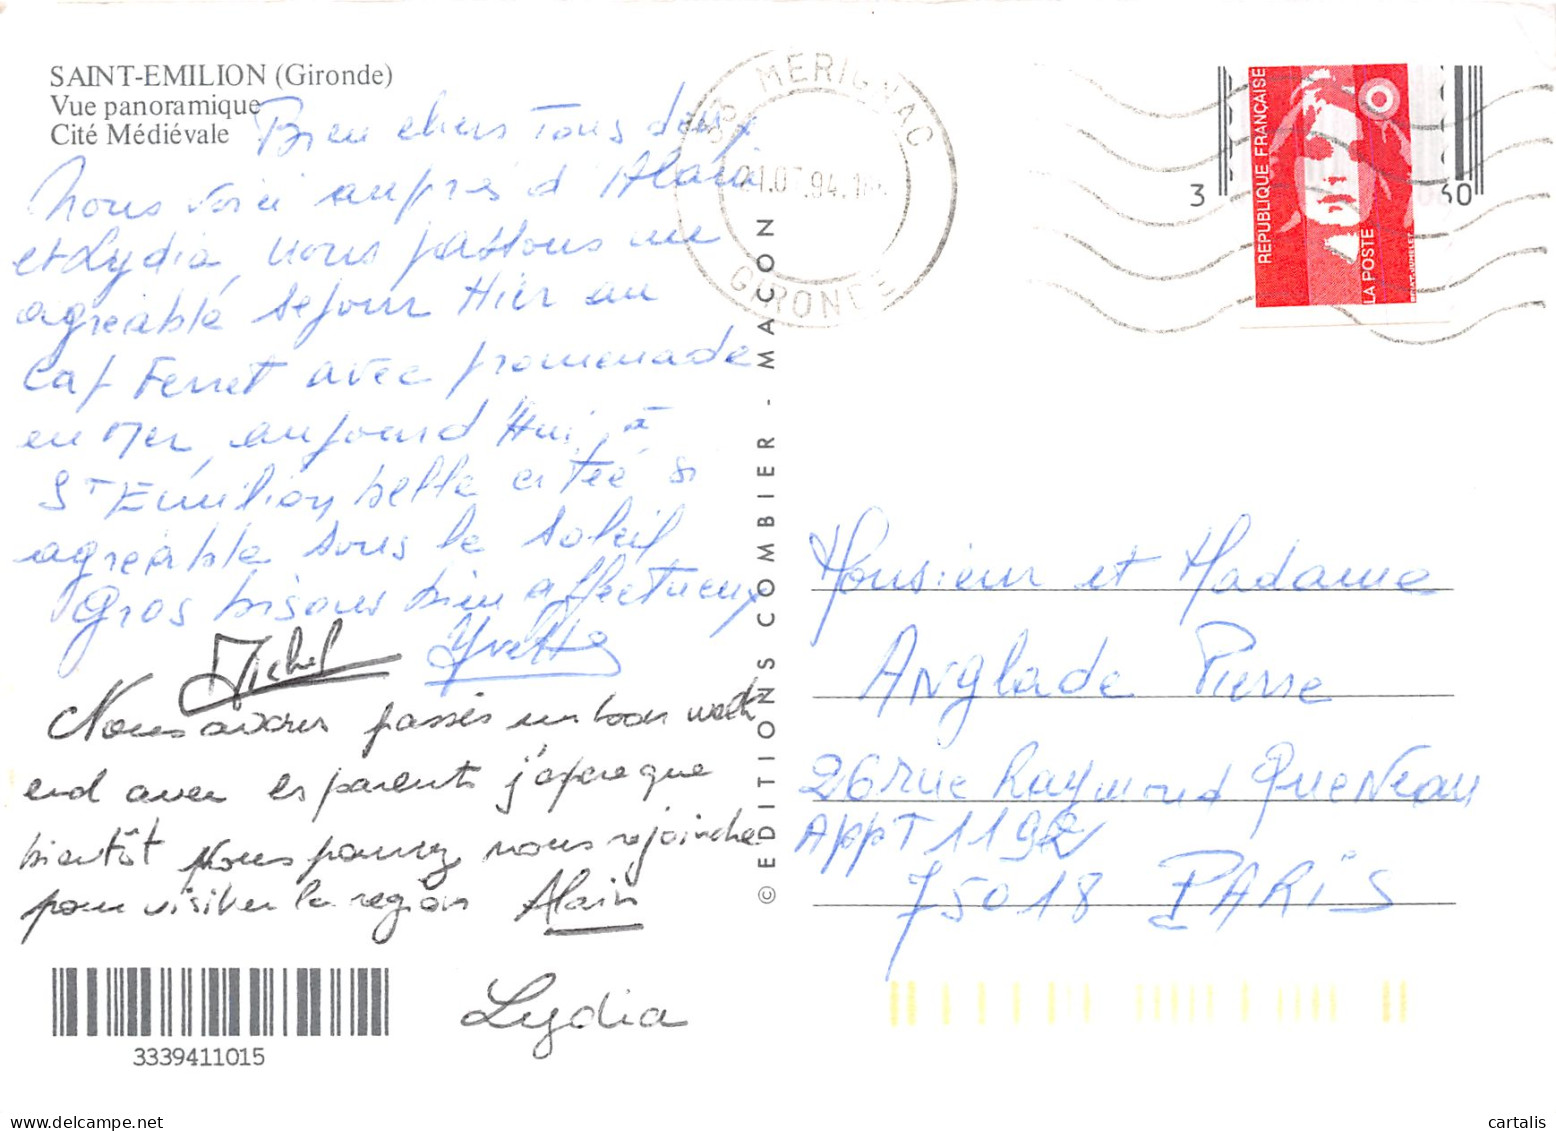 SAINT-EMILION (Gironde)
Vue panoramique
Cité Médiévale
Bien chers Tous deux
Nous voici auprès d'Alain
et Lydia, nous passons un
agréable séjour Hier au
Cap Ferret avec promenade
en Mer, aujourd'Hui, à
St Emilion belle citée si
agréable sous le soleil
Gros bisous bien affectueux
Michel Yvette
Nous avons passés un bon week
end avec les parents j'espère que
bientôt Nous pourrez nous rejoindre
pour visiter la region Alain
Lydia
3339411015
© EDITIONS COMBIER - MACON
33 MERIGNAC
.94.
GIRONDE
3
40
REPUBLIQUE FRANÇAISE
LA POSTE
Monsieur et Madame
Anglade Pierre
26 rue Raymond QueNeau
AppT 1192
75018 PARIS
cartalis